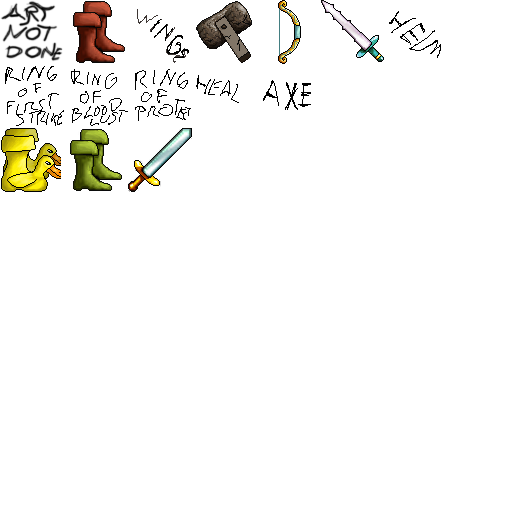 ART
NOT
DONE
WINGS
HELM
RING
OF
FIRST
STRIKE
RING
OF
BLOOD
LUST
RING
OF
PROTE
HEAL
AXE